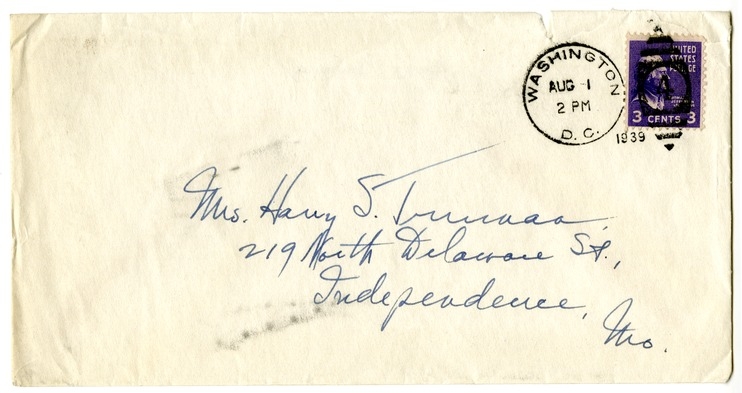 WASHINGTON
AUG -1
2 PM
D. C.
1939
UNITED
STATES
POSTAGE
3 CENTS 3
Mrs. Harry S. Truman,
219 North Delaware St.,
Independence,
Mo.